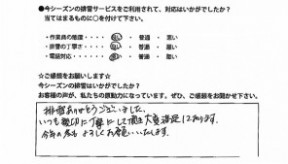 ●今シーズンの排雪サービスをご利用されて、対応はいかがでしたか？
当てはまるものに○を付けて下さい。
・作業員の態度・・・・ 良い ・ 普通 ・ 悪い
・排雪の丁寧さ・・・・ 良い ・ 普通 ・ 悪い
・電話対応・・・・・・ 良い ・ 普通 ・ 悪い
☆ご感想をお願いします☆
今シーズンの排雪はいかがでしたか？
お客様の声が、私たちの原動力になっています。ぜひ、ご感想をお聞かせ下さい。
排雪ありがとうございました。
いつも親切に丁寧にして頂き大変満足しております。
今年の冬もよろしくお願いいたします。